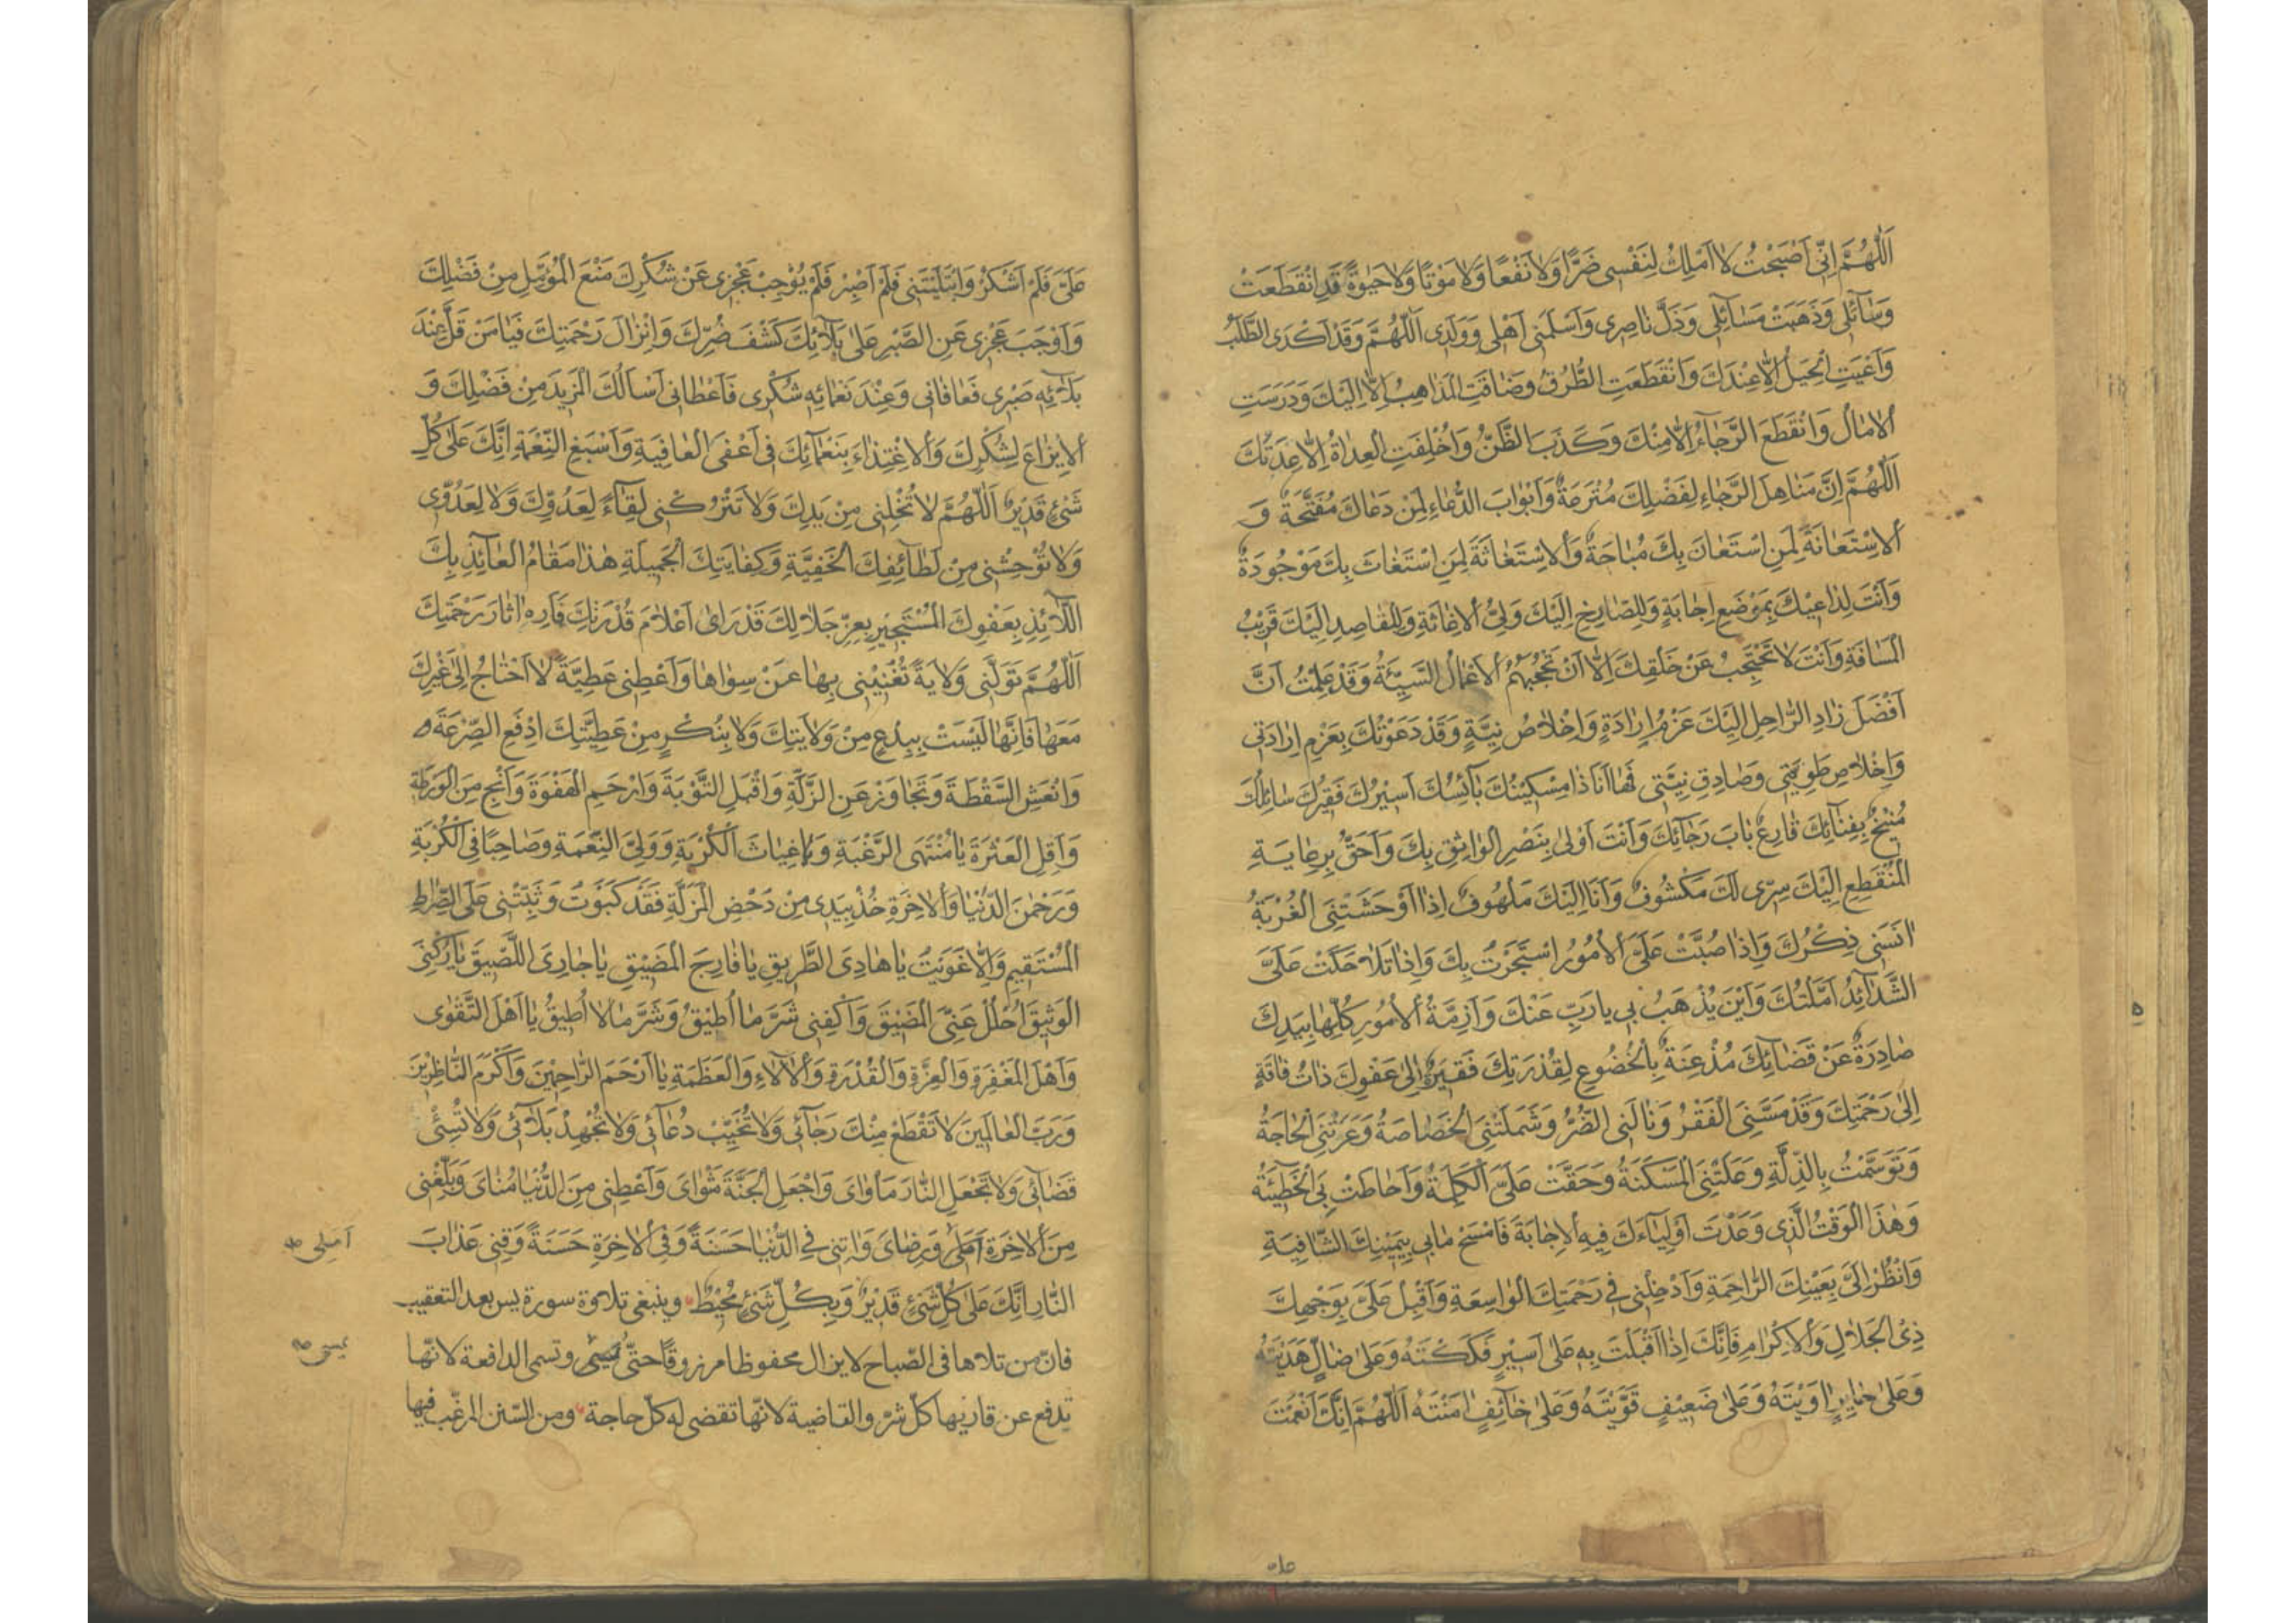 اَللّٰهُمَّ اِنّى اَصْبَحْتُ لا اَمْلِكُ لِنَفْسى ضَرًّا وَلا نَفْعًا وَلا مَوْتًا وَلا حَيٰوةً قَدِ انْقَطَعَتْ
وَسٰآئلى وَذَهَبَتْ مَسٰآئِلى وَذَلَّ ناصِرى وَاَسْلَمَنى اَهْلى وَوَلَدِى اَللّٰهُمَّ وَقَدْ اَكْدَى الطَّلَبُ
وَاَعْيَتِ الْحِيَلُ اِلّا عِنْدَكَ وَانْقَطَعَتِ الطُّرُقُ وَضاقَتِ الْمَذاهِبُ اِلّا اِلَيْكَ وَدَرَسَتِ
الْامالُ وَانْقَطَعَ الرَّجٰاءُ اِلّا مِنْكَ وَكَذَبَ الظَّنُّ وَاُخْلِفَتِ الْعِداةُ اِلّا عِدَتُكَ
اَللّٰهُمَّ اِنَّ مَناهِلَ الرَّجاءِ لِفَضْلِكَ مُتْرَعَةٌ وَاَبْوابَ الدُّعاءِ لِمَنْ دَعاكَ مُفَتَّحَةٌ وَ
الْاِسْتَعانَةَ لِمَنِ اسْتَعانَ بِكَ مُباحَةٌ وَالْاِسْتَغاثَةَ لِمَنِ اسْتَغاثَ بِكَ مَوْجُودَةٌ
وَاَنْتَ لِداعيكَ بِمَوْضَعِ اِجابَةٍ وَلِلصّارِخِ اِلَيْكَ وَلِىُّ الْاِغاثَةِ وَلِلْقاصِدِ اِلَيْكَ قَريْبُ
الْمَسافَةِ وَاَنْتَ لا تَحْتَجِبُ عَنْ خَلْقِكَ اِلّا اَنْ تَحْجُبَهُمُ الْاَعْمالُ السَّيِّئَةُ وَقَدْ عَلِمْتُ اَنَّ
اَفْضَلَ زادِ الرّاحِلِ اِلَيْكَ عَزْمُ اِرادَةٍ وَاِخْلاصُ نِيَّةٍ وَقَدْ دَعَوْتُكَ بِعَزْمِ اِرادَتى
وَاِخْلاصِ طَوِيَّتى وَصادِقِ نِيَّتى فَها اَنَا ذا مِسْكينُكَ بآئِسُكَ اَسيْرُكَ فَقيرُكَ سائِلُكَ
مُنيخٌ بِفِنآئِكَ قارِعٌ بابَ رَجآئِكَ وَاَنْتَ اَوْلى بِنَصْرِ الْواثِقِ بِكَ وَاَحَقُّ بِرِعايَةِ
الْمُنْقَطِعِ اِلَيْكَ سِرّى لَكَ مَكْشُوفٌ وَاَنَا اِلَيْكَ مَلْهُوفٌ اِذا اَوْحَشَتْنِى الْغُرْبَةُ
انَسَنى ذِكْرُكَ وَاِذا صُبَّتْ عَلَىَّ الْاُمُورُ اسْتَجَرْتُ بِكَ وَاِذا تَلاحَكَتْ عَلَىَّ
الشَّدآئِدُ اَمَّلْتُكَ وَاَيْنَ يُذْهَبُ بى يا رَبِّ عَنْكَ وَاَزِمَّةُ الْاُمُورِ كُلِّها بِيَدِكَ
صادِرَةٌ عَنْ قَضآئِكَ مُذْعِنَةٌ بِالْخُضُوعِ لِقُدْرَتِكَ فَقيرَةٌ اِلى عَفْوِكَ ذاتُ فاقَةٍ
اِلى رَحْمَتِكَ وَقَدْ مَسَّنِىَ الْفَقْرُ وَنالَنى الضُّرُّ وَشَمَلَتْنِىَ الْخَصاصَةُ وَعَرَتْنِىَ الْحاجَةُ
وَتَوَسَّمْتُ بِالذِّلَّةِ وَعَلَتْنِىَ الْمَسْكَنَةُ وَحَقَّتْ عَلَىَّ الْكَلِمَةُ وَاَحاطَتْ بِىَ الْخَطيئَةُ
وَهٰذَا الْوَقْتُ الَّذى وَعَدْتَ اَوْلِيٰآءَكَ فيهِ الْاِجابَةَ فَامْسَحْ ما بى بِيَمينِكَ الشّافِيَةِ
وَانْظُرْ اِلَىَّ بِعَيْنِكَ الرّاحِمَةِ وَاَدْخِلْنى فى رَحْمَتِكَ الْواسِعَةِ وَاَقْبِلْ عَلَىَّ بِوَجْهِكَ
ذِى الْجَلالِ وَالْاِكْرامِ فَاِنَّكَ اِذا اَقْبَلْتَ بِهِ عَلى اَسيْرٍ فَكَكْتَهُ وَعَلى ضالٍّ هَدَيْتَهُ
وَعَلى حايِرٍ اوَيْتَهُ وَعَلى ضَعيْفٍ قَوَّيْتَهُ وَعَلى خآئِفٍ امَنْتَهُ اَللّٰهُمَّ اِنَّكَ اَنْعَمْتَ
عَلَىَّ فَلَمْ اَشْكُرْ وَابْتَلَيْتَنى فَلَمْ اَصْبِرْ فَلَمْ يُوْجِبْ عَجْزى عَنْ شُكْرِكَ مَنْعَ الْمُؤَمَّلِ مِنْ فَضْلِكَ
وَاَوْجَبَ عَجْزى عَنِ الصَّبْرِ عَلى بَلآئِكَ كَشْفَ ضُرِّكَ وَاِنْزالَ رَحْمَتِكَ فَيا مَنْ قَلَّ عِنْدَ
بَلآئِهِ صَبْرى فَعافانى وَعِنْدَ نَعْمائِهِ شُكْرى فَاَعْطانى اَسْاَلُكَ الْمَزيدَ مِنْ فَضْلِكَ وَ
الْاِيْزاعَ لِشُكْرِكَ وَالْاِغْتِذاءَ بِنَعْمآئِكَ فى اَعْفَى الْعافِيَةِ وَاَسْبَغِ النِّعْمَةِ اِنَّكَ عَلى كُلِّ
شَىْءٍ قَديْرٌ اَللّٰهُمَّ لا تُخْلِنى مِنْ يَدِكَ وَلا تَتْرُكْنى لِقآءً لِعَدُوِّكَ وَلا لِعَدُوّى
وَلا تُوْحِشْنى مِنْ لَطآئِفِكَ الْخَفِيَّةِ وَكِفايَتِكَ الْجَميلَةِ هٰذا مَقامُ الْعآئِذِ بِكَ
اللّآئِذِ بِعَفْوِكَ الْمُسْتَجيْرِ بِعِزِّ جَلالِكَ قَدْ رَاى اَعْلامَ قُدْرَتِكَ فَاَرِهِ اثارَ رَحْمَتِكَ
اَللّٰهُمَّ تَوَلَّنى وَلايَةً تُغْنِيْنى بِها عَنْ سِواها وَاَعْطِنى عَطِيَّةً لا اَحْتاجُ اِلى غَيْرِكَ
مَعَها فَاِنَّها لَيْسَتْ بِبِدْعٍ مِنْ وَلايَتِكَ وَلا بِنُكْرٍ مِنْ عَطِيَّتِكَ اِدْفَعِ الصَّرْعَةَ
وَانْعَشِ السَّقْطَةَ وَتَجاوَزْ عَنِ الزَّلَّةِ وَاقْبَلِ التَّوْبَةَ وَارْحَمِ الْهَفْوَةَ وَاَنْجِ مِنَ الْوَرْطَةِ
وَاَقِلِ الْعَثْرَةَ يا مُنْتَهَى الرَّغْبَةِ وَيا غِياثَ الْكُرْبَةِ وَوَلِىَّ النِّعْمَةِ وَصاحِبًا فى الْكُرْبَةِ
وَرَحْمٰنَ الدُّنْيا وَالْاخِرَةِ خُذْ بِيَدى مِنْ دَحْضِ الْمَزَلَّةِ فَقَدْ كَبَوْتُ وَثَبِّتْنى عَلَى الصِّراطِ
الْمُسْتَقيمِ وَاِلّا غَوَيْتُ يا هادِىَ الطَّريقِ يا فارِجَ الْمَضيْقِ يا جارِىَ اللَّصيقَ يا رُكْنِىَ
الْوَثيقَ اُحْلُلْ عَنّىَ الْمَضيْقَ وَاكْفِنى شَرَّ ما اُطيْقُ وَشَرَّ ما لا اُطيقُ يا اَهْلَ التَّقْوى
وَاَهْلَ الْمَغْفِرَةِ وَالْعِزَّةِ وَالْقُدْرَةِ وَالْالاءِ وَالْعَظَمَةِ يا اَرْحَمَ الرّاحِمينَ وَاَكْرَمَ النّاظِريْنَ
وَرَبَّ الْعالَمينَ لا تَقْطَعْ مِنْكَ رَجآئى وَلا تُخَيِّبْ دُعآئى وَلا تُجْهِدْ بَلآئى وَلا تُسِئْ
قَضآئى وَلا تَجْعَلِ النّارَ مَاْواىَ وَاجْعَلِ الْجَنَّةَ مَثْواىَ وَاَعْطِنى مِنَ الدُّنْيا مُناىَ وَبَلِّغْنى
مِنَ الْاخِرَةِ اَمَلى وَرِضاىَ وَاتِنى فى الدُّنْيا حَسَنَةً وَفى الْاخِرَةِ حَسَنَةً وَقِنى عَذابَ
اَمَلى
النّارِ اِنَّكَ عَلى كُلِّ شَىْءٍ قَديْرٌ وَبِكُلِّ شَىْءٍ مُحيْطٌ وينبغى تلاوة سورة يس بعد التعقيب
فانّ من تلاها فى الصّباح لا يزال محفوظا مرزوقًا حتّى يمسى وتسمى الدافعة لانّها
يمسى
تدفع عن قاريها كلّ شرّ والقاضية لانّها تقضى له كلّ حاجة ومن السّنن المرغّب فيها